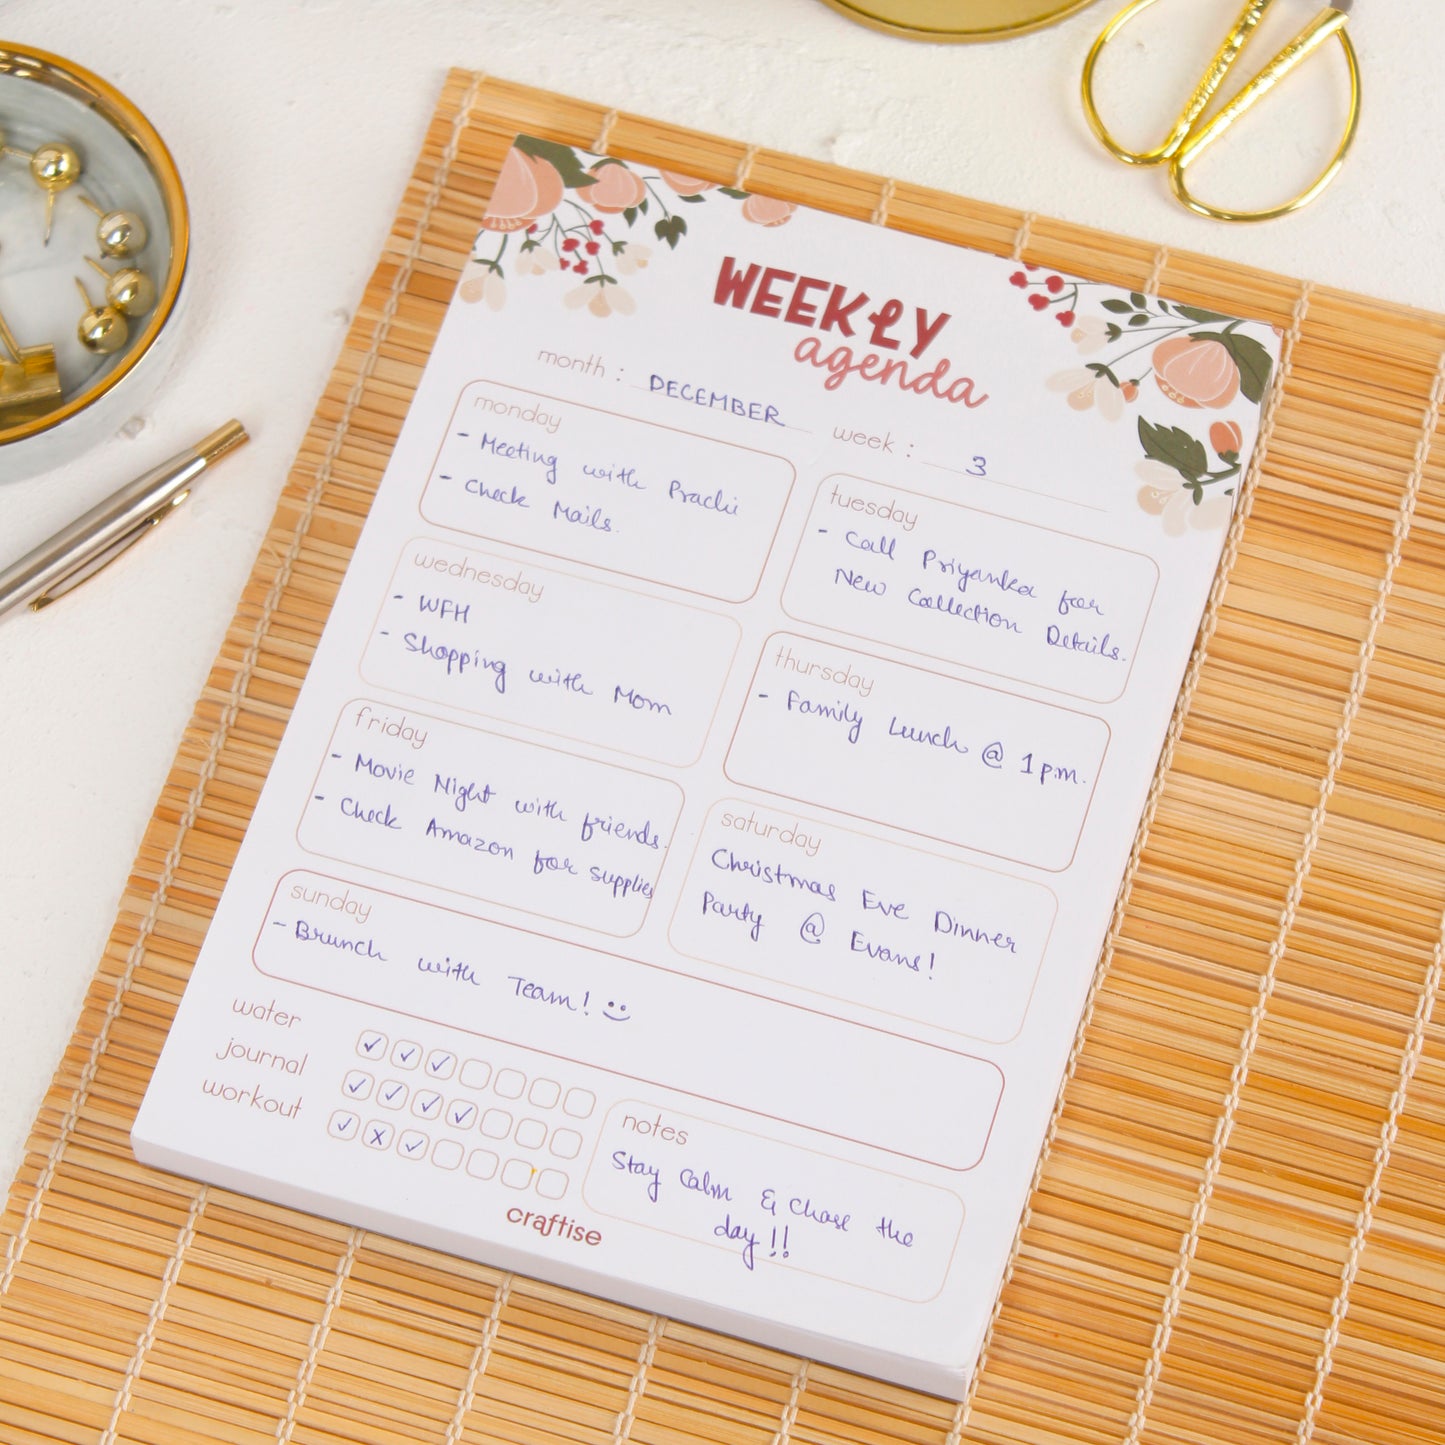 WEEKLY
agenda
month : DECEMBER
week : 3
monday
- Meeting with Prachi
- Check Mails.
tuesday
- Call Priyanka for
New Collection Details.
wednesday
- WFH
- Shopping with Mom
thursday
- Family Lunch @ 1 p.m.
friday
- Movie Night with friends.
- Check Amazon for supplies
saturday
Christmas Eve Dinner
Party @ Evans!
sunday
- Brunch with Team!
water
journal
workout
notes
Stay Calm & Chase the
day!!
craftise